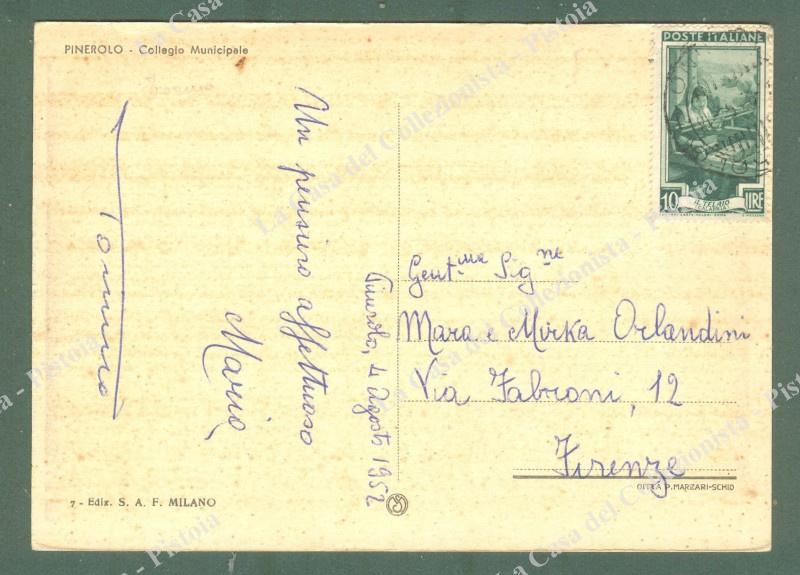 PINEROLO - Collegio Municipale
POSTE ITALIANE
10 LIRE
IL TELAIO
Un pensiero affettuoso
Maria,
Pinerolo, 4 Agosto 1952
Gent.me Sig.ne
Mara e Mirka Orlandini
Via Fabroni, 12
Firenze
DITTA P. MARZARI-SCHIO
7 - Ediz. S. A. F. MILANO
La Casa del Collezionista - Pistoia